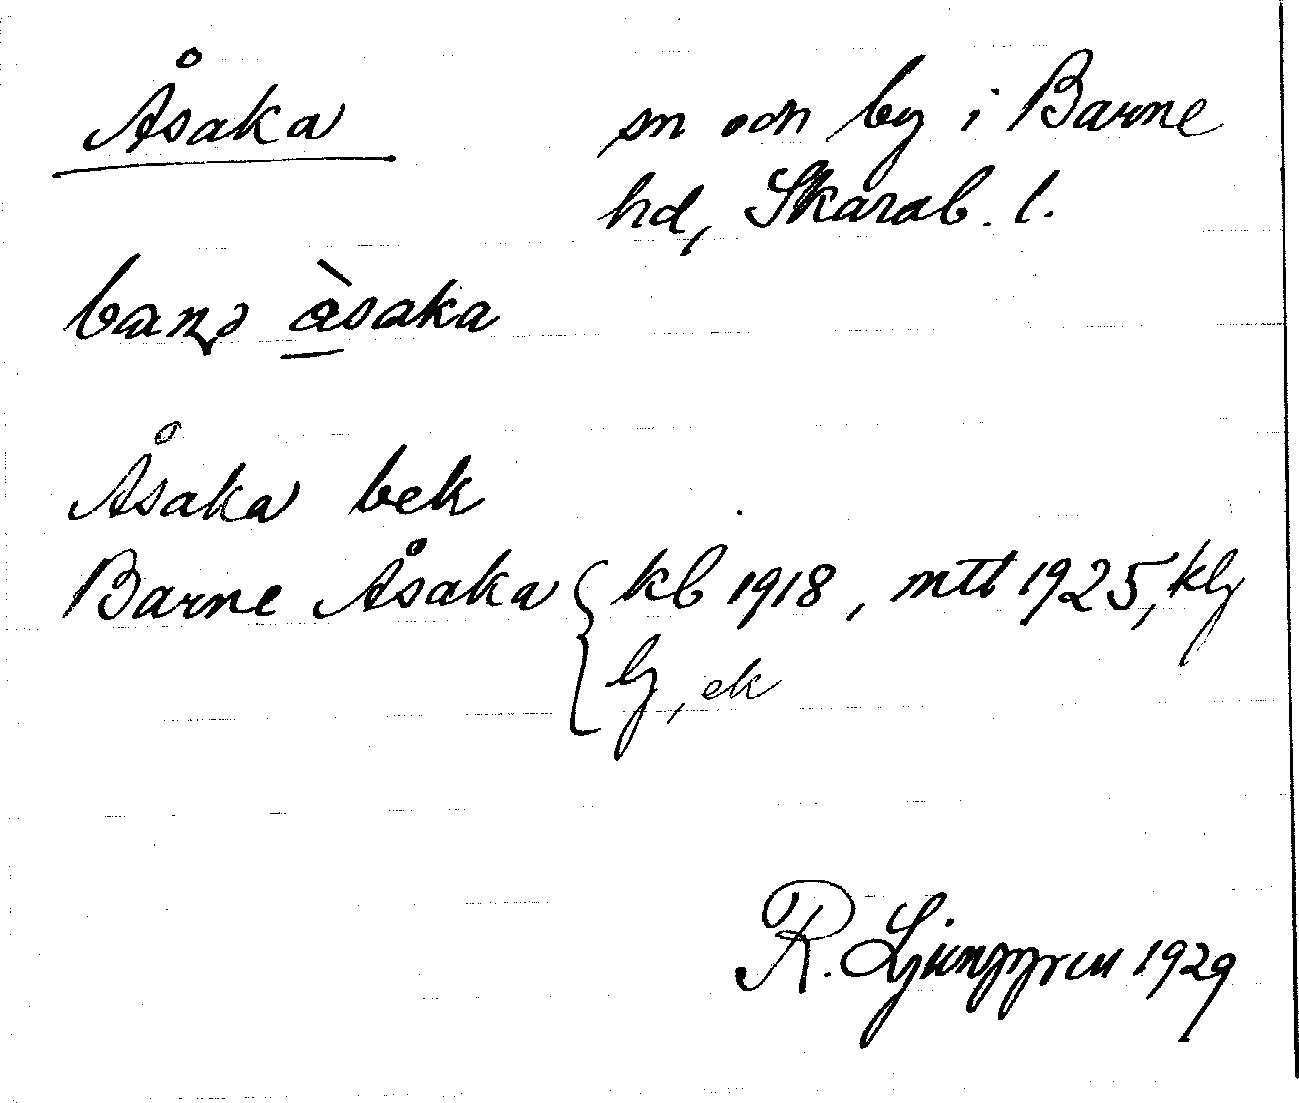 Åsaka
sn och by i Barne
hd, Skarab. l.
baɳə àsaka
Åsaka bek
Barne Åsaka { kb 1918, mtl 1925, klj
lj, ek
R. Ljunggren 1929